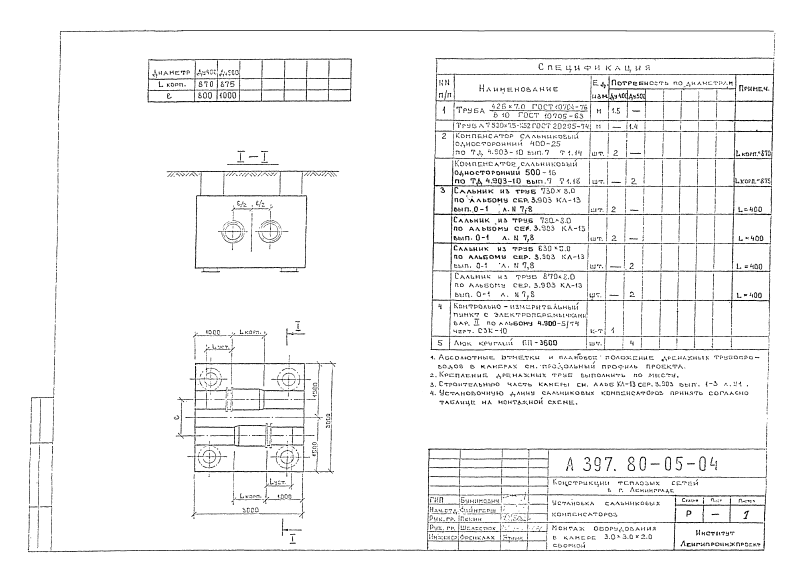 Диаметр Ду400 Ду500
L корп. 870 875
е 800 1000
I – I
е/2 е/2
1000 Lкорп. I
Lуст.
е
1500
3000
1500
Lуст.
Lкорп. 1000
3000
I
Спецификация
NN п/п Наименование Ед. изм. Потребность по диаметрам Примеч.
Ду400 Ду500
1 Труба 426×7.0 ГОСТ 10704-76 м 1.5 —
В 10 ГОСТ 10705-63
м — 1.4
2 Компенсатор сальниковый
односторонний 400-25
по ТД 4.903-10 вып.7 Т 1.14 шт. 2 — Lкорп.=870
Компенсатор сальниковый
односторонний 500-16
по ТД 4.903-10 вып.7 Т 1.16 шт. — 2 Lкорп.=875
3 Сальник из труб 730×3.0
по альбому сер. 3.903 КЛ-13
вып. 0-1 л. N 7,8 шт. 2 — L=400
Сальник из труб
по альбому сер. 3.903 КЛ-13
вып. 0-1 л. N 7,8 шт. 2 — L=400
Сальник из труб
по альбому сер. 3.903 КЛ-13
вып. 0-1 л. N 7,8 шт. — 2 L=400
Сальник из труб
по альбому сер. 3.903 КЛ-13
вып. 0-1 л. N 7,8 шт. — 2 L=400
4 Контрольно-измерительный
пункт с электроперемычками
вар. II по альбому 4.900-5/74
черт. СЗК-10 к-т 1
5 Люк круглый шт. 4
1. Абсолютные отметки и плановое положение дренажных трубопро-
водов в камерах см. продольный профиль проекта.
2. Крепление дренажных труб выполнить по месту.
3. Строительную часть камеры см. КЛ-13 сер. 3.903 вып. 1-3
4. Установочную длину сальниковых компенсаторов принять согласно
таблице на монтажной схеме.
А 397. 80-05-04
Конструкции тепловых сетей
в г. Ленинграде
ГИП Бунимович
Нач. отд.
Рук. гр.
Рук. гр.
Инженер
Установка сальниковых
компенсаторов
Лист Листов
Р — 1
Монтаж оборудования
в камере 3.0×3.0×2.0
сборной
Институт
Ленгипроинжпроект